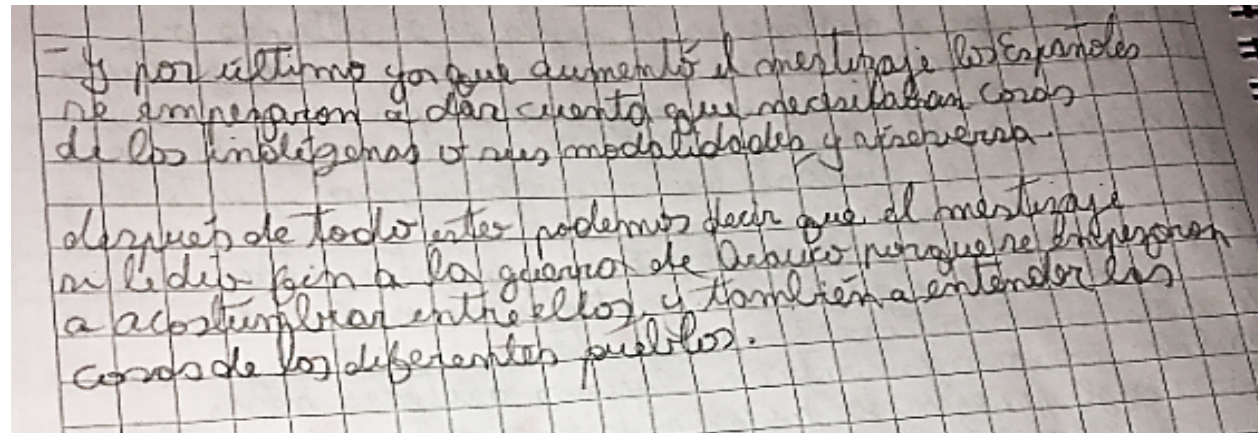 - y por ultimo ya que aumentó el mestizaje los Españoles
se empezaron a dar cuenta que necesitaban cosas
de los indigenas o sus modalidades y
después de todo esto podemos decir que el mestizaje
si le dio fin a la guerra de Arauco porque se empezaron
a acostumbrar entre ellos y también a entender las
cosas de los diferentes pueblos.